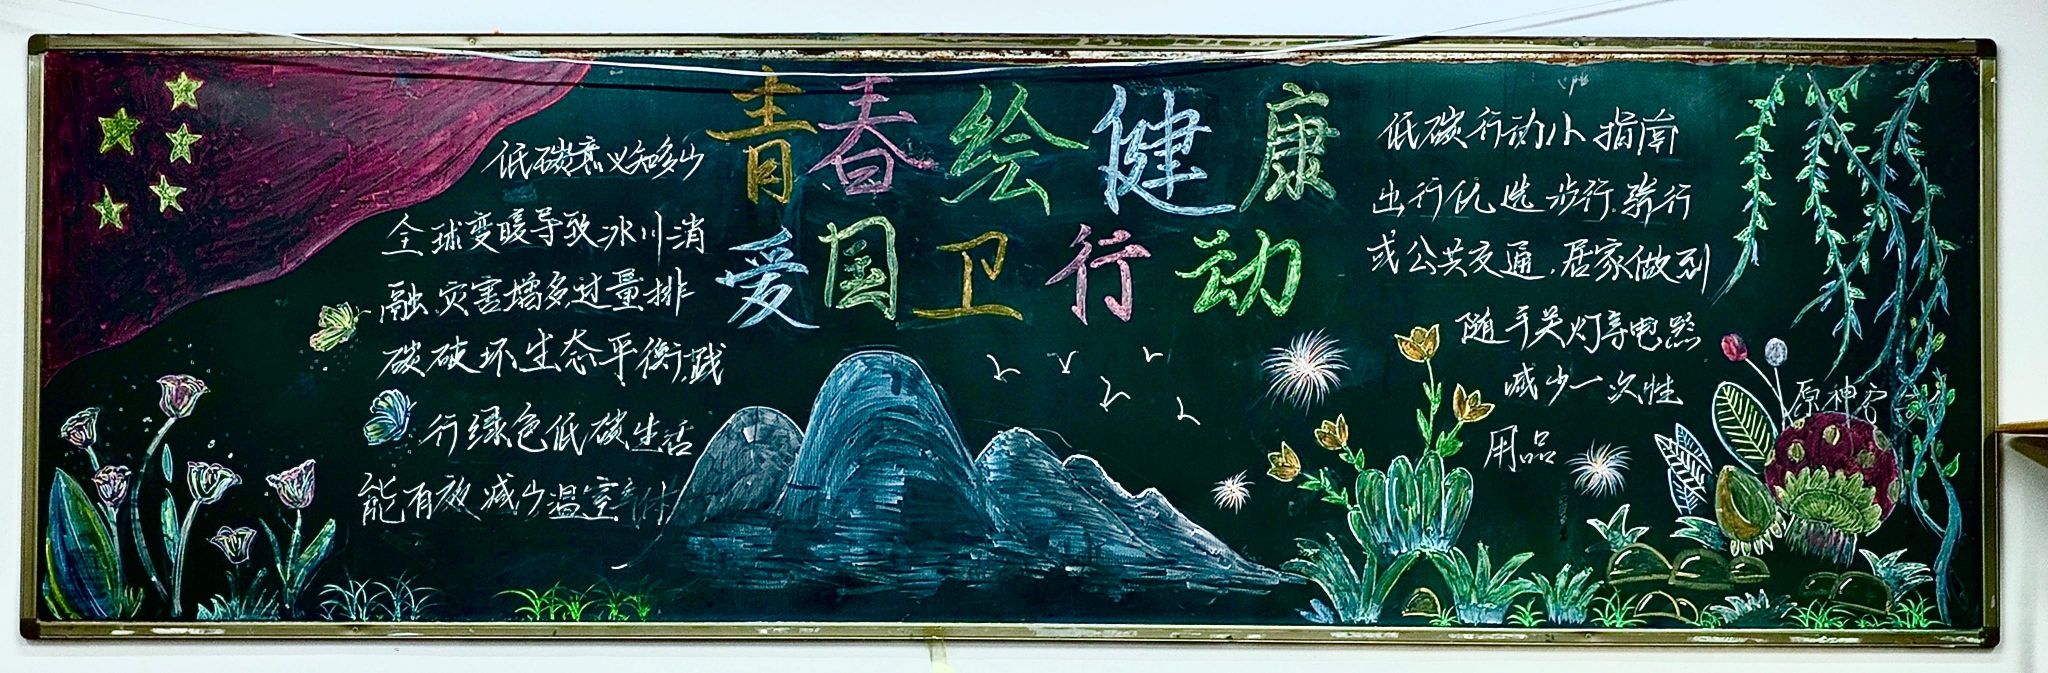 青春绘健康
爱国卫行动
低碳意义知多少
全球变暖导致冰川消
融,灾害增多,过量排
碳破坏生态平衡,践
行绿色低碳生活
能有效减少温室气体
低碳行动小指南
出行优选步行.骑行
或公共交通,居家做到
随手关灯享电器
减少一次性
用品
原神